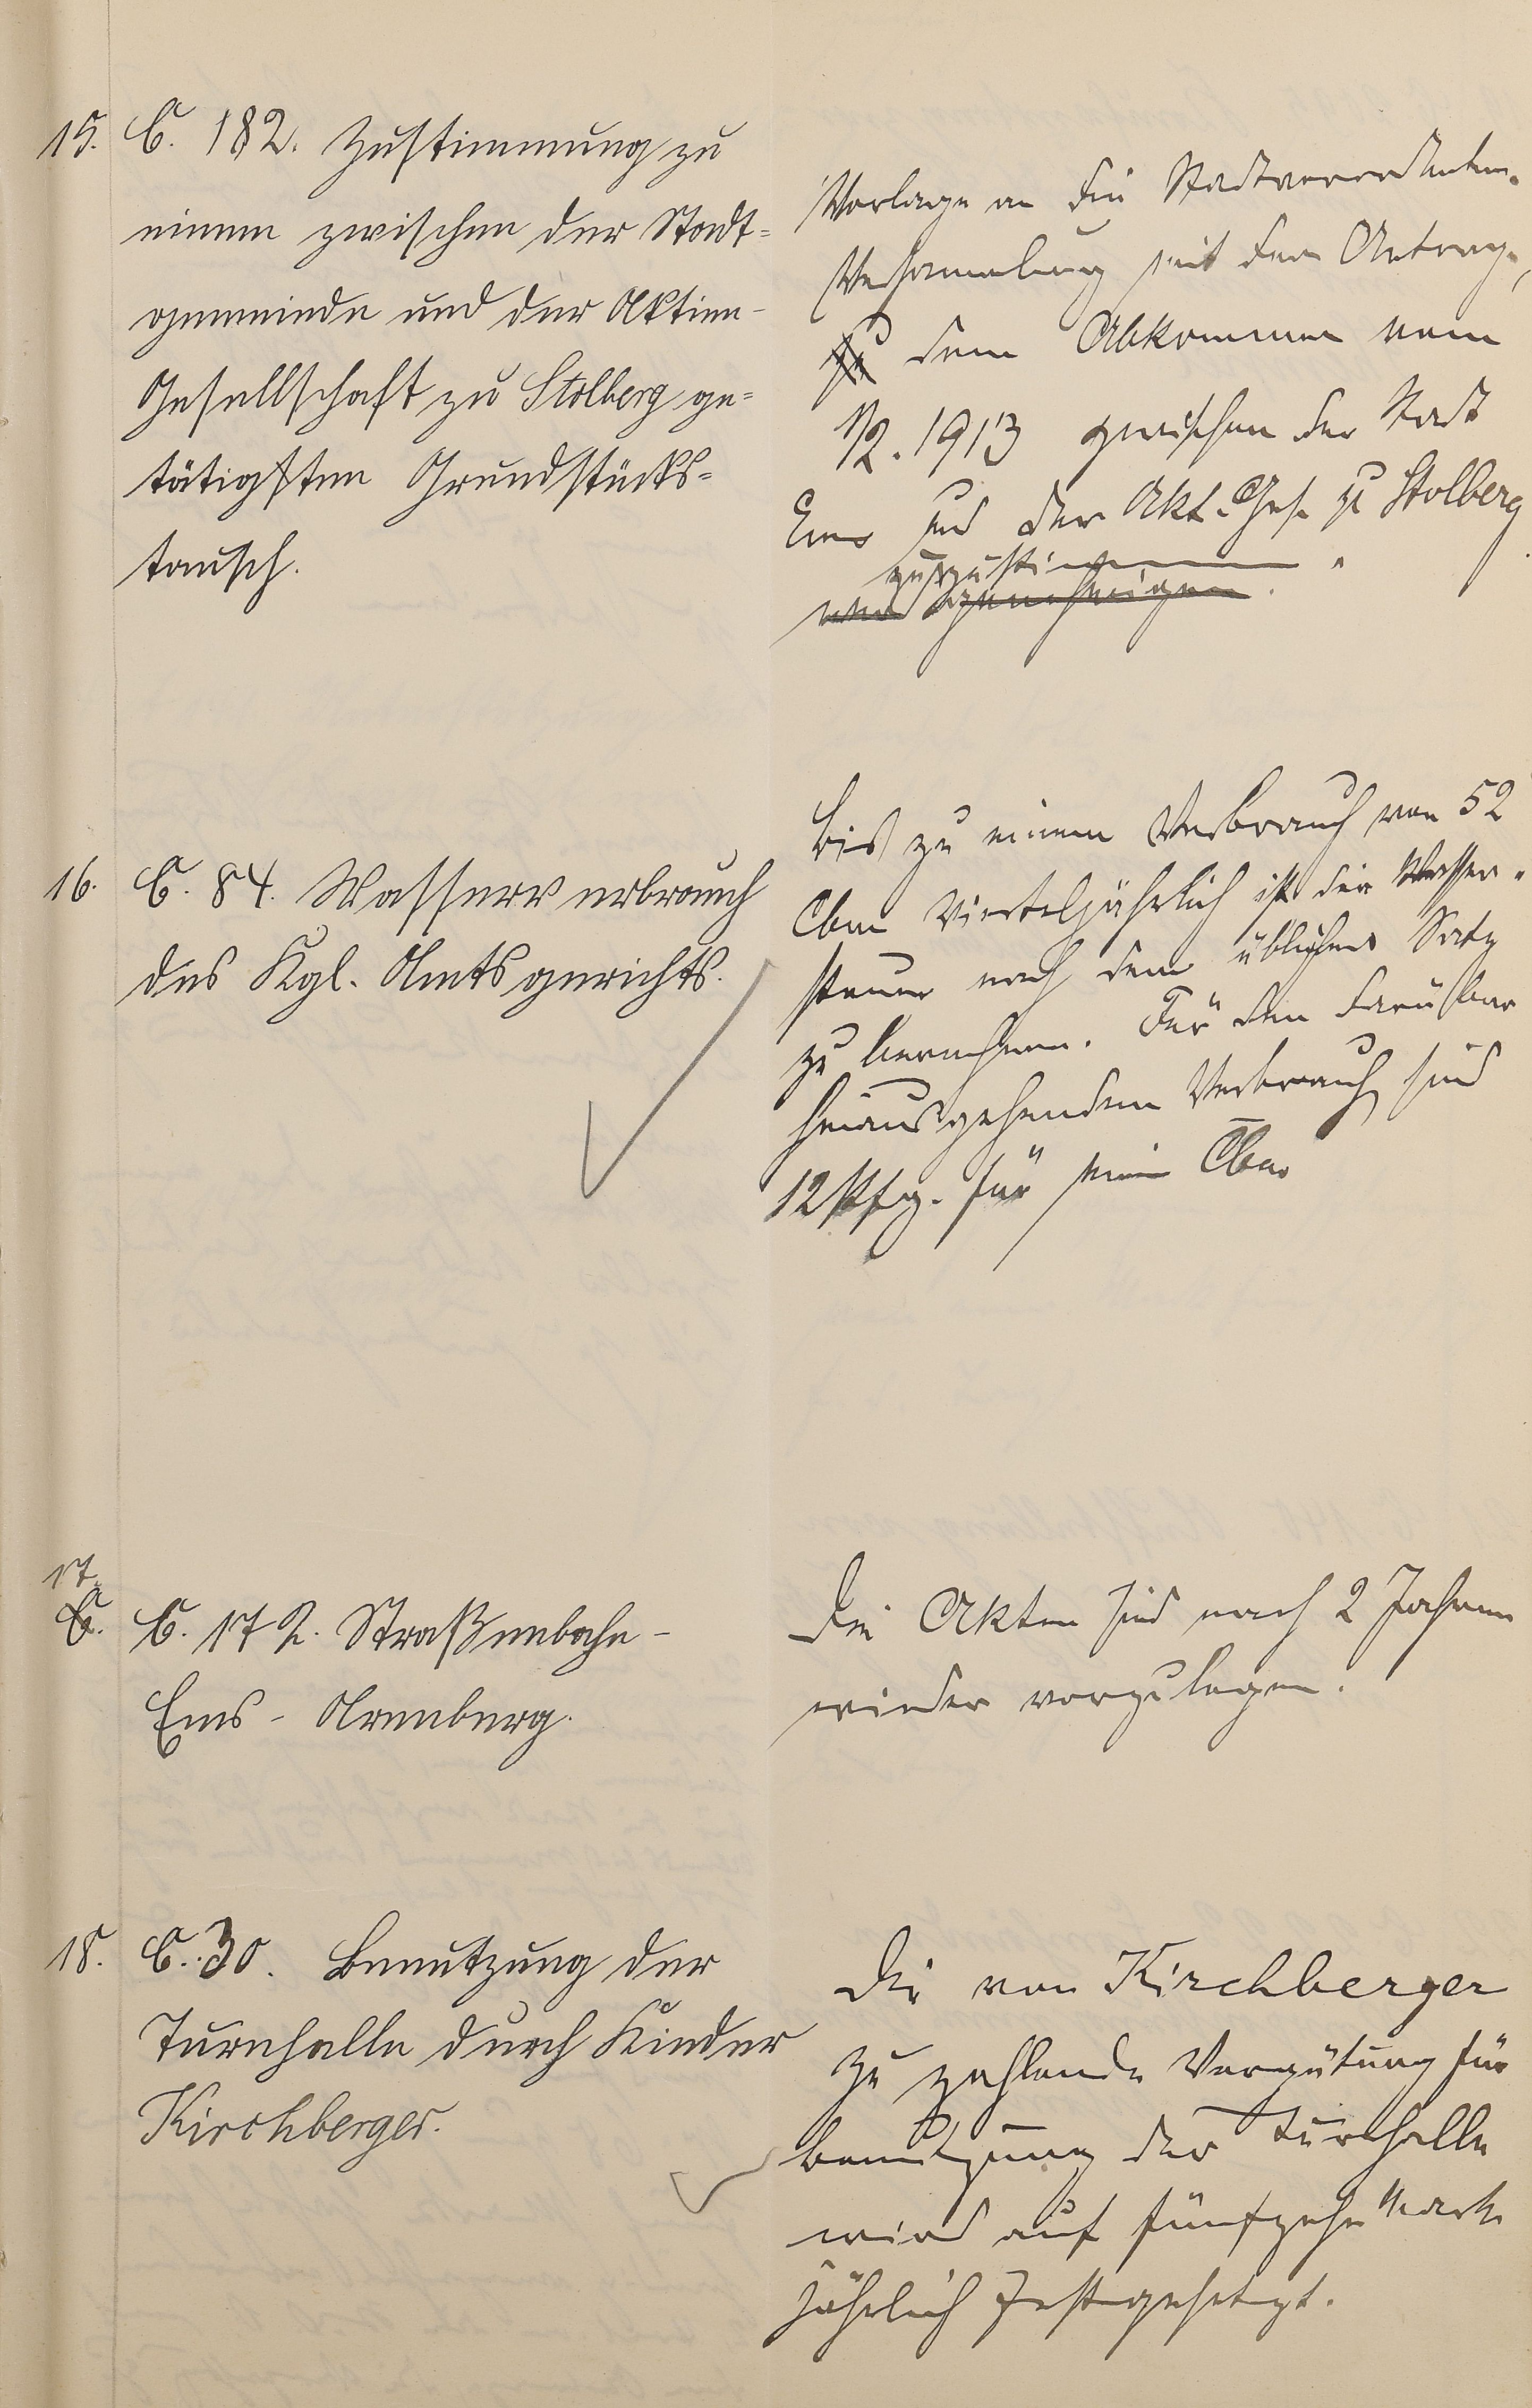 15. C. 182. Zustimmung zu
einem zwischen der Stadt=
gemeinde und der Aktien-
Gesellschaft zu Stolberg ge=
tätigten Grundstücks=
tausch.
Vorlage an die Stadtverordneten-
Versammlung mit dem Antrage,
zu dem Abkommen vom
1/2. 1913 zwischen der Stadt
Ems und der Akt. Ges. zu Stolberg
zuzustimmen.
und genehmigen.
16. C. 84. Wasserverbrauch
des Kgl. Amtsgerichts.
Bis zu einem Verbrauch von 52
Cbm vierteljährlich ist der Wasser-
steuer nach dem üblichen Satz
zu berechnen. Für den darüber
hinausgehenden Verbrauch sind
12 Pfg. für Cbm
17.
C. C. 172. Straßenbahn-
Ems - Arenberg.
Die Akten sind nach 2 Jahren
wieder vorzulegen.
18. C. 30. Benutzung der
Turnhalle durch Kinder
Kirchberger.
Die von Kirchberger
zu zahlende Vergütung für
Benutzung der Turnhalle
wird auf fünfzehn Mark
jährlich festgesetzt.